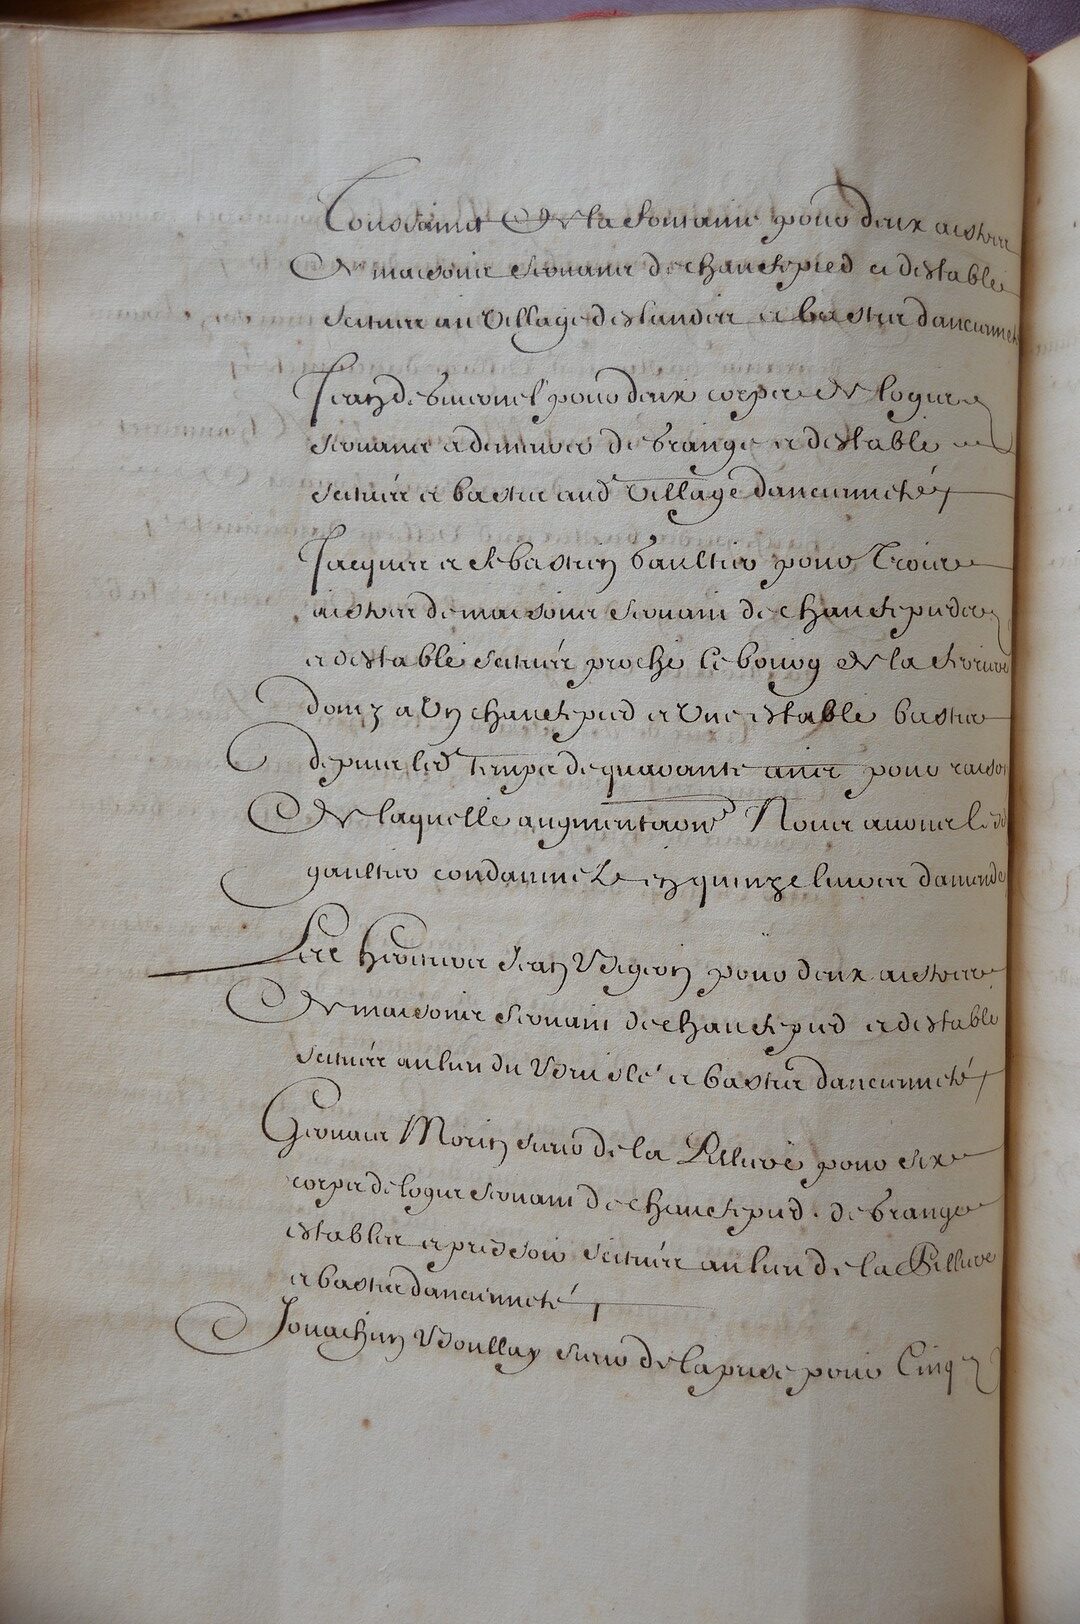 Toussainct De la fontaine pour deux aistres
De maisons servans de chauffepied et destable
scituez au village des landes et bastis danciennete
Jean de bucornet pour deux corps De logis
servans a demeurer de grange et destable
scituez et bastis aud village dancienneté
Jacques et sebastien gaultier pour Trois
aistres de maisons servans de chauffepied
et destable scituez proche le bourg De la ferriere
dont y a Un chauffepied et Une estable bastis
depuis led temps de quarante ans pour raison
De laquelle augmentaon Nous avons led
gaultier condamné En quinze livres damende
Les heritiers Jean Vigeon pour deux aistres
De maisons servans de chauffepied et destable
scituez au lieu du et bastis danciennete
Gervais Morin sieur de la Pelluere pour six
corps de logis servans de chauffepied . de grange
estables et pressoir scituez au lieu de la Pelluere
et bastis danciennete
Jouachim Boullay sieur de la prise pour Cinq